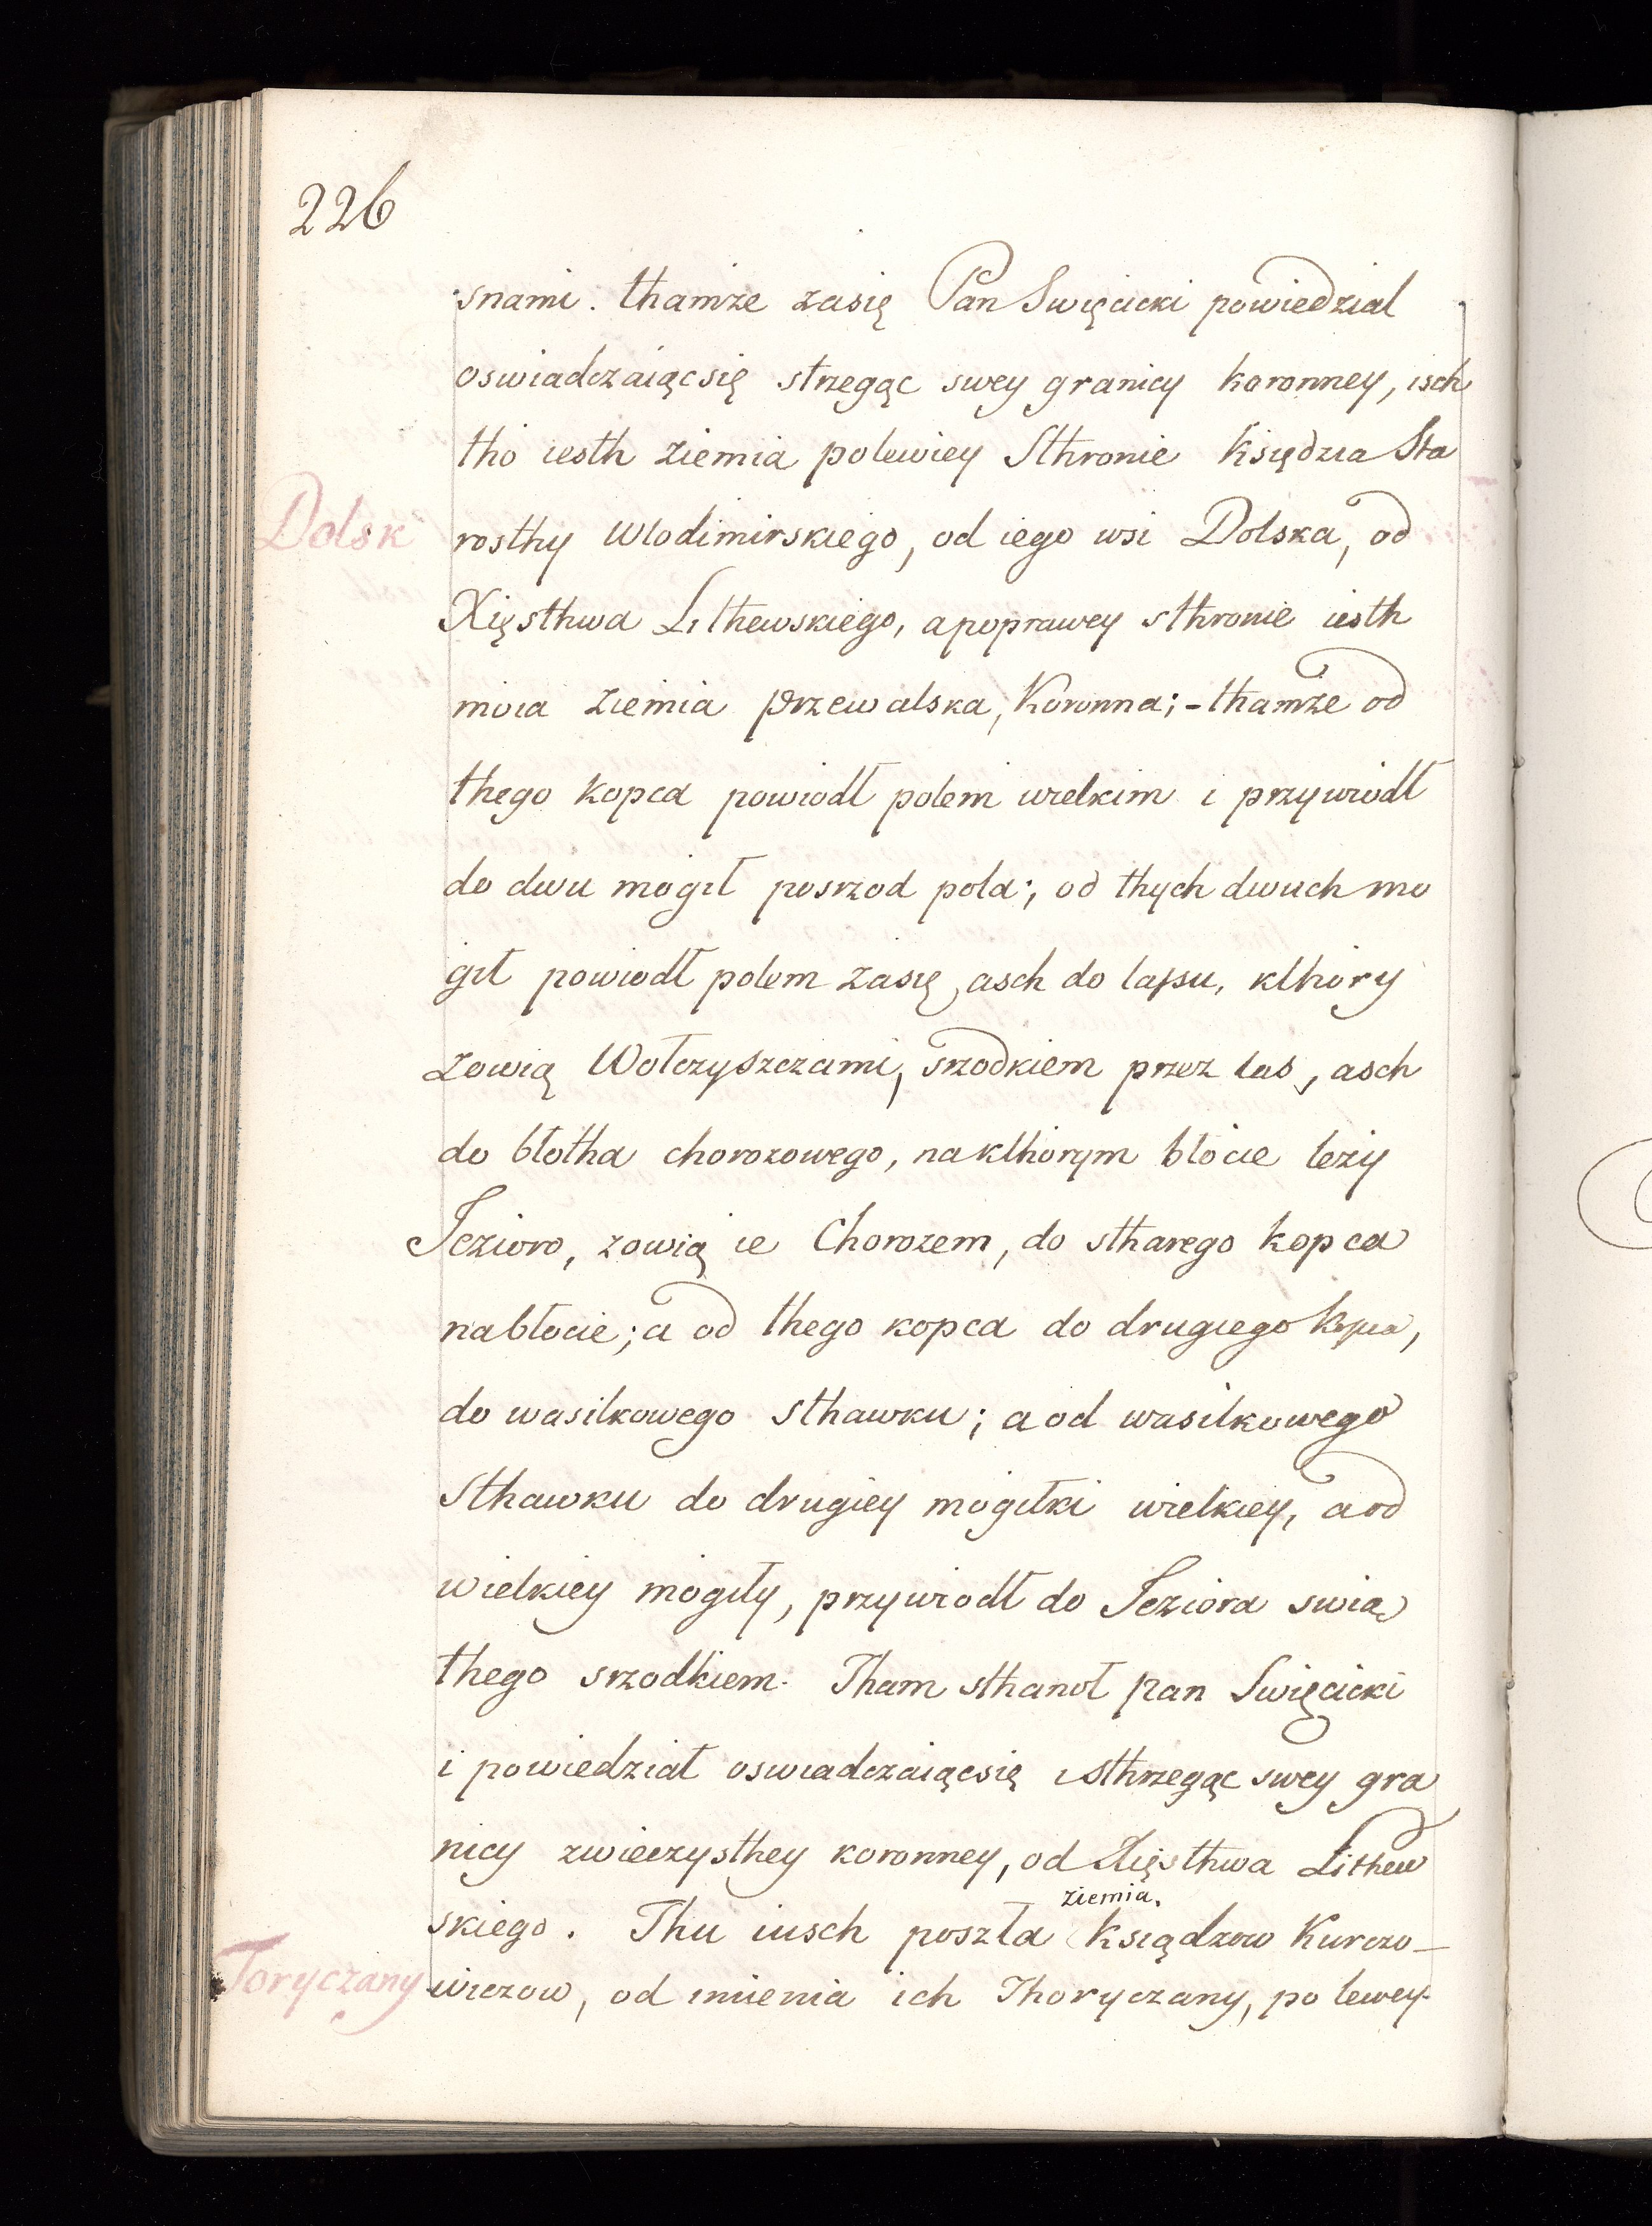 226
snami. thamze zasię Pan Swięcicki powiedzial
oswiadczaiącsię strzegąc swey granicy koronney, isch
tho iesth ziemia polewiey Sthronie Księdza Sta
Dolsk
rosthy Wlodimirskiego, od iego wsi Dolska, od
Xięsthwa Lithewskiego, apoprawey sthronie iesth
moia ziemia przewalska, Koronna; - thamze od
thego kopca powiodł polem wielkim i przywiodł
do dwu mogił posrzod pola; od thych dwuch mo
gił powiodł polem zasię, asch do lassu, kthory
zowią Wołczyszczami, srzodkiem przez las, asch
do błotha chorozowego, nakthorym błocie leży
Jezioro, zowią ie Chorozem, do stharego kopca
nabłocie; a od thego kopca do drugiego kopca,
do wasilkowego sthawku; a od wasilkowego
Sthawku do drugiey mogiłki wielkiey, a od
wielkiey mogiły, przywiodł do Jeziora swią
thego srzodkiem. Tham sthanoł pan Swięcicki
i powiedział oswiadczaiącsię isthrzegąc swey gra
nicy zwieczysthey koronney, od Xięsthwa Lithew
ziemia,
skiego. Thu iusch poszła Ksiądzow Kurczo-
Toryczany
wiczow, od imienia ich Thoryczany, po lewey